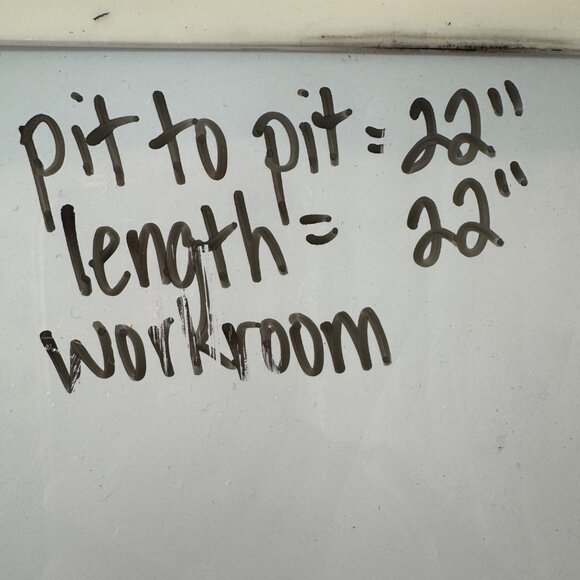 pit to pit = 22"
length = 22"
workroom